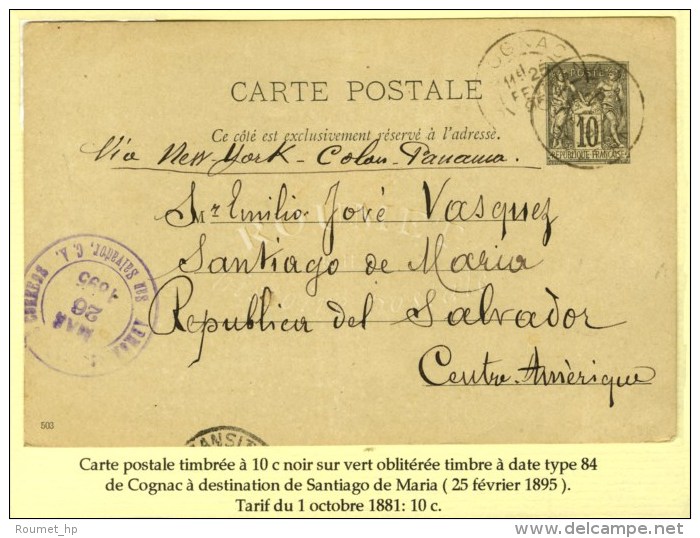 CARTE POSTALE
COGNAC
25
POSTES
10
REPUBLIQUE FRANÇAISE
Ce côté est exclusivement réservé à l'adresse.
Via New-York-Colon-Panama.
Mr Emilio José Vasquez
Santiago de Maria
Republica del Salvador
Centre-Amèrique
CORREOS
San Salvador, C. A.
MAR
26
1895
503
TRANSIT
Carte postale timbrée à 10 c noir sur vert oblitérée timbre à date type 84
de Cognac à destination de Santiago de Maria ( 25 février 1895 ).
Tarif du 1 octobre 1881: 10 c.
Roumet_hp
delcampe.net